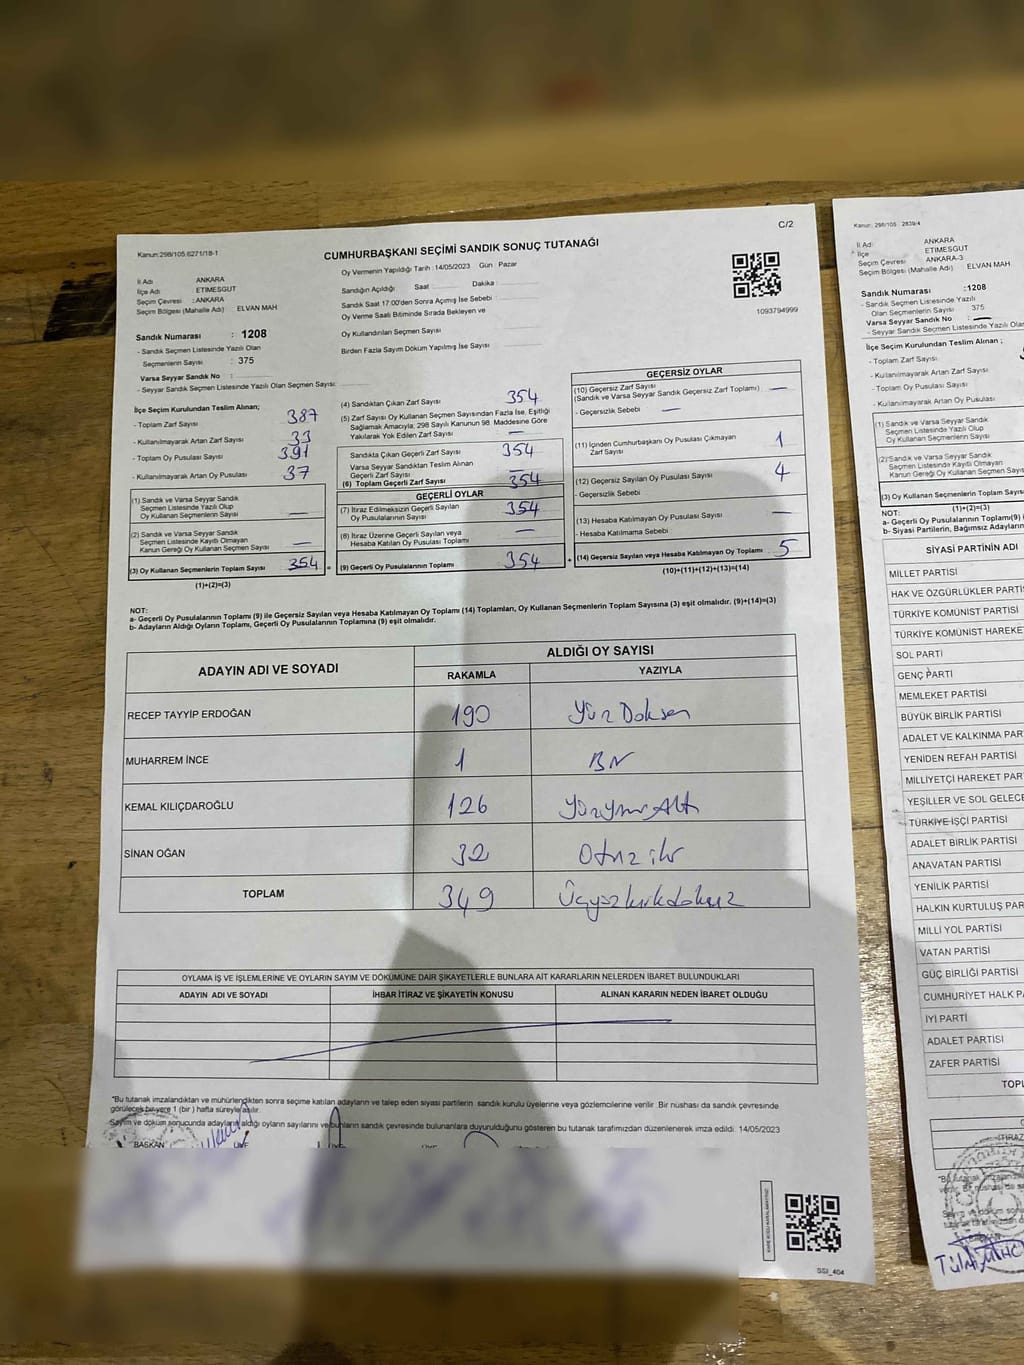 C/2
Kanun:298/105.6271/18-1
CUMHURBAŞKANI SEÇİMİ SANDIK SONUÇ TUTANAĞI
İl Adı ANKARA
İlçe Adı ETİMESGUT
Seçim Çevresi : ANKARA
Seçim Bölgesi (Mahalle Adı) ELVAN MAH
Sandık Numarası : 1208
- Sandık Seçmen Listesinde Yazılı Olan
Seçmenlerin Sayısı : 375
Varsa Seyyar Sandık No :
- Seyyar Sandık Seçmen Listesinde Yazılı Olan Seçmen Sayısı:
Oy Vermenin Yapıldığı Tarih : 14/05/2023 Gün : Pazar
Sandığın Açıldığı Saat Dakika
Sandık Saat 17.00'den Sonra Açımış İse Sebebi
Oy Verme Saati Bitiminde Sırada Bekleyen ve
Oy Kullandırılan Seçmen Sayısı
Birden Fazla Sayım Döküm Yapılmış İse Sayısı
1093794999
İlçe Seçim Kurulundan Teslim Alınan;
- Toplam Zarf Sayısı 387
- Kullanılmayarak Artan Zarf Sayısı 33
- Toplam Oy Pusulası Sayısı 391
- Kullanılmayarak Artan Oy Pusulası 37
(1) Sandık ve Varsa Seyyar Sandık
Seçmen Listesinde Yazılı Olup
Oy Kullanan Seçmenlerin Sayısı —
(2) Sandık ve Varsa Seyyar Sandık
Seçmen Listesinde Kayıtlı Olmayan
Kanun Gereği Oy Kullanan Seçmen Sayısı —
(3) Oy Kullanan Seçmenlerin Toplam Sayısı 354 =
(1)+(2)=(3)
(4) Sandıktan Çıkan Zarf Sayısı 354
(5) Zarf Sayısı Oy Kullanan Seçmen Sayısından Fazla İse, Eşitliği
Sağlamak Amacıyla; 298 Sayılı Kanunun 98. Maddesine Göre
Yakılarak Yok Edilen Zarf Sayısı —
Sandıkta Çıkan Geçerli Zarf Sayısı 354
Varsa Seyyar Sandıktan Teslim Alınan
Geçerli Zarf Sayısı —
(6) Toplam Geçerli Zarf Sayısı 354
GEÇERLİ OYLAR
(7) İtiraz Edilmeksizin Geçerli Sayılan
Oy Pusulalarının Sayısı 354
(8) İtiraz Üzerine Geçerli Sayılan veya
Hesaba Katılan Oy Pusulaları Toplamı —
(9) Geçerli Oy Pusulalarının Toplamı 354 +
GEÇERSİZ OYLAR
(10) Geçersiz Zarf Sayısı
(Sandık ve Varsa Seyyar Sandık Geçersiz Zarf Toplamı) —
- Geçersizlik Sebebi —
(11) İçinden Cumhurbaşkanı Oy Pusulası Çıkmayan
Zarf Sayısı 1
(12) Geçersiz Sayılan Oy Pusulası Sayısı 4
- Geçersizlik Sebebi
(13) Hesaba Katılmayan Oy Pusulası Sayısı —
- Hesaba Katılmama Sebebi
(14) Geçersiz Sayılan veya Hesaba Katılmayan Oy Toplamı 5
(10)+(11)+(12)+(13)=(14)
NOT:
a- Geçerli Oy Pusulalarının Toplamı (9) ile Geçersiz Sayılan veya Hesaba Katılmayan Oy Toplamı (14) Toplamları, Oy Kullanan Seçmenlerin Toplam Sayısına (3) eşit olmalıdır. (9)+(14)=(3)
b- Adayların Aldığı Oyların Toplamı, Geçerli Oy Pusulalarının Toplamına (9) eşit olmalıdır.
ADAYIN ADI VE SOYADI ALDIĞI OY SAYISI
RAKAMLA YAZIYLA
RECEP TAYYİP ERDOĞAN 190 Yüz Doksan
MUHARREM İNCE 1 Bir
KEMAL KILIÇDAROĞLU 126 Yüzyirmi Altı
SİNAN OĞAN 32 Otuz iki
TOPLAM 349 Üçyüzkırkdokuz
OYLAMA İŞ VE İŞLEMLERİNE VE OYLARIN SAYIM VE DÖKÜMÜNE DAİR ŞİKAYETLERLE BUNLARA AİT KARARLARIN NELERDEN İBARET BULUNDUKLARI
ADAYIN ADI VE SOYADI İHBAR İTİRAZ VE ŞİKAYETİN KONUSU ALINAN KARARIN NEDEN İBARET OLDUĞU
"Bu tutanak imzalandıktan ve mühürlendikten sonra seçime katılan adayların ve talep eden siyasi partilerin sandık kurulu üyelerine veya gözlemcilerine verilir. Bir nüshası da sandık çevresinde
görülecek bir yere 1 (bir) hafta süreyle asılır.
Sayım ve döküm sonucunda adayların aldığı oyların sayılarını ve bunların sandık çevresinde bulunanlara duyurulduğunu gösteren bu tutanak tarafımızdan düzenlenerek imza edildi. 14/05/2023
BAŞKAN ÜYE ÜYE ÜYE
SSI_404
Kanun: 298/105 2839/4
İl Adı ANKARA
İlçe ETİMESGUT
Seçim Çevresi ANKARA-3
Seçim Bölgesi (Mahalle Adı) ELVAN MAH
Sandık Numarası :1208
- Sandık Seçmen Listesinde Yazılı
Olan Seçmenlerin Sayısı 375
Varsa Seyyar Sandık No : —
- Seyyar Sandık Seçmen Listesinde Yazılı
İlçe Seçim Kurulundan Teslim Alınan ;
- Toplam Zarf Sayısı
- Kullanılmayarak Artan Zarf Sayısı
- Toplam Oy Pusulası Sayısı
- Kullanılmayarak Artan Oy Pusulası
(1) Sandık ve Varsa Seyyar Sandık
Seçmen Listesinde Yazılı Olup
Oy Kullanan Seçmenlerin Sayısı
(2) Sandık ve Varsa Seyyar Sandık
Seçmen Listesinde Kayıtlı Olmayan
Kanun Gereği Oy Kullanan Seçmen
(3) Oy Kullanan Seçmenlerin Toplam
(1)+(2)=(3)
NOT:
a- Geçerli Oy Pusulalarının Toplamı(9)
b- Siyasi Partilerin, Bağımsız
SİYASİ PARTİNİN ADI
MİLLET PARTİSİ
HAK VE ÖZGÜRLÜKLER PARTİSİ
TÜRKİYE KOMÜNİST PARTİSİ
TÜRKİYE KOMÜNİST
SOL PARTİ
GENÇ PARTİ
MEMLEKET PARTİSİ
BÜYÜK BİRLİK PARTİSİ
ADALET VE KALKINMA
YENİDEN REFAH PARTİSİ
MİLLİYETÇİ HAREKET
YEŞİLLER VE SOL
TÜRKİYE İŞÇİ PARTİSİ
ADALET BİRLİK PARTİSİ
ANAVATAN PARTİSİ
YENİLİK PARTİSİ
HALKIN KURTULUŞ
MİLLİ YOL PARTİSİ
VATAN PARTİSİ
GÜÇ BİRLİĞİ PARTİSİ
CUMHURİYET HALK
İYİ PARTİ
ADALET PARTİSİ
ZAFER PARTİSİ